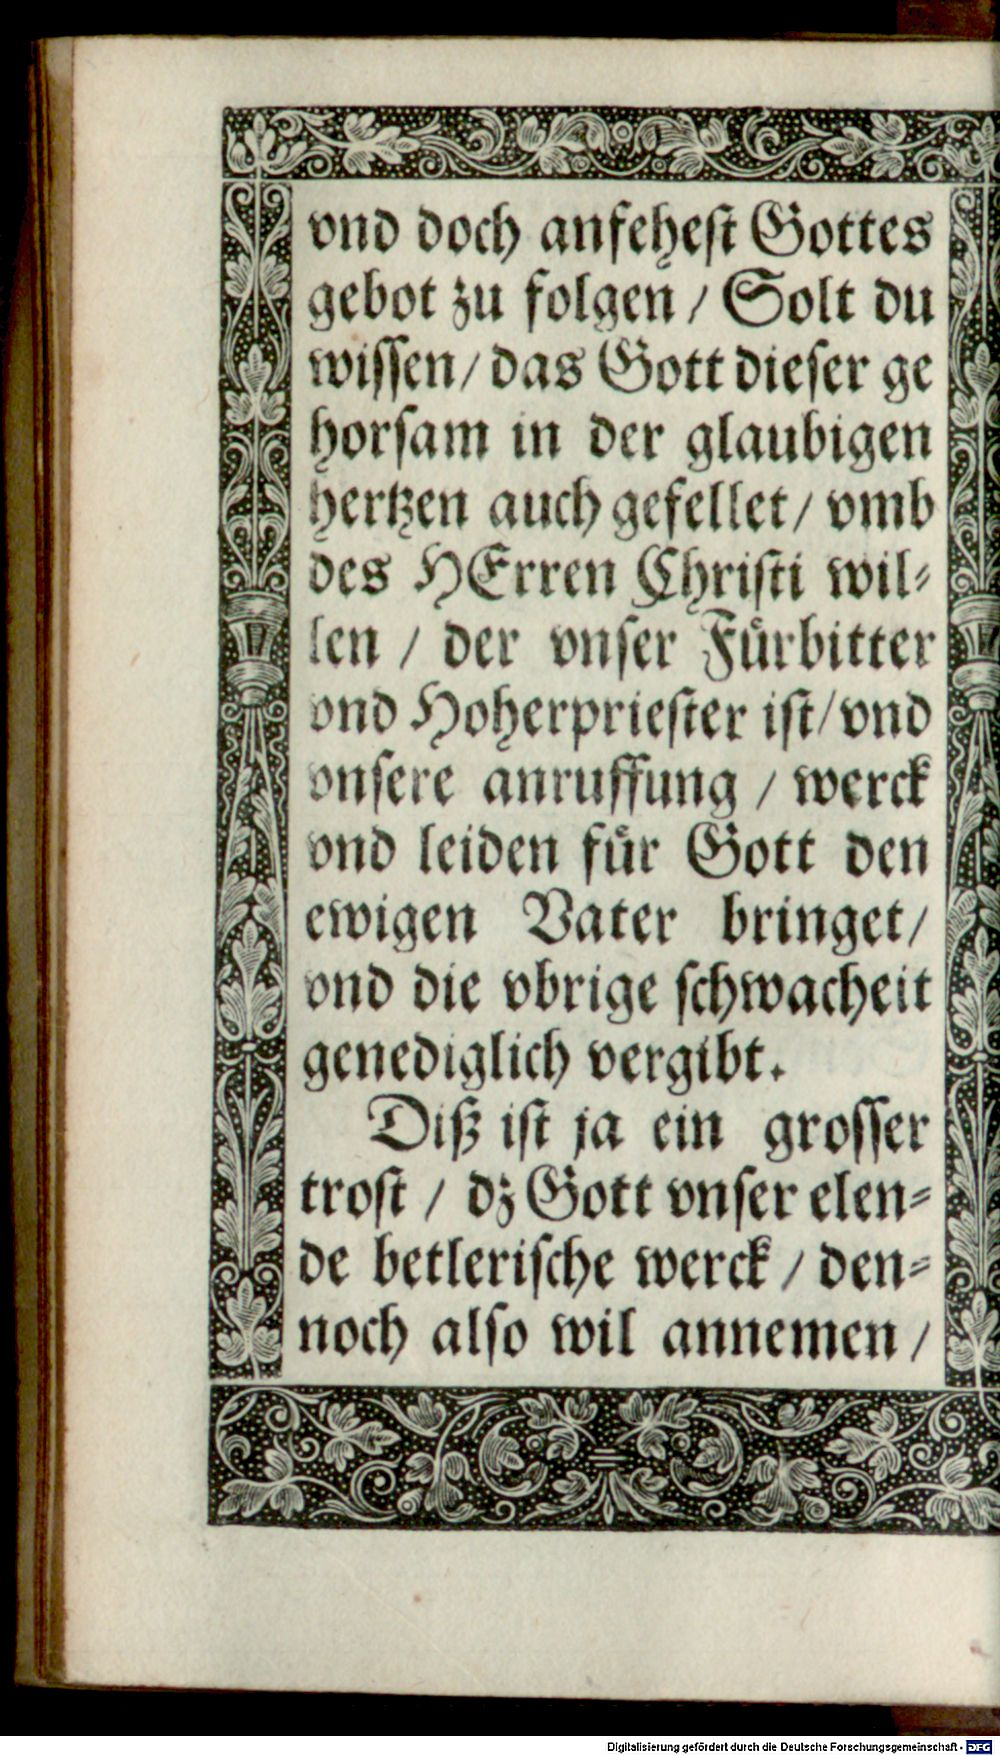 vnd doch anfehest Gottes
gebot zu folgen / Solt du
wissen / das Gott dieser ge
horsam in der glaubigen
hertzen auch gefellet / vmb
des HErren Christi wil⸗
len / der vnser Fürbitter
vnd Hoherpriester ist / vnd
vnsere anruffung / werck
vnd leiden für Gott den
ewigen Vater bringet /
vnd die vbrige schwacheit
genediglich vergibt.
Diß ist ja ein grosser
trost / dz Gott vnser elen⸗
de betlerische werck / den⸗
noch also wil annemen /
Digitalisierung gefördert durch die Deutsche Forschungsgemeinschaft - DFG